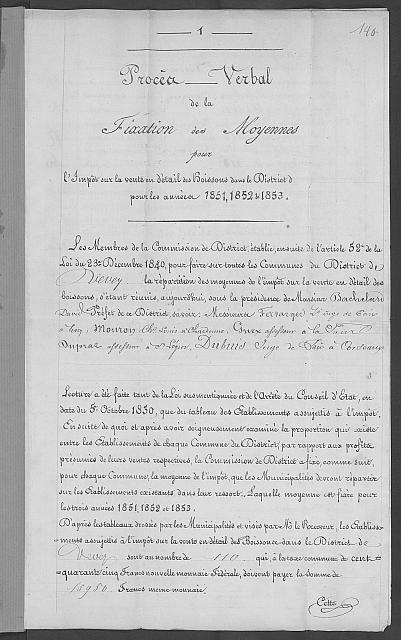 1
140
Procès-Verbal
de la
Fixation des Moyennes
pour
l'Impôt sur la vente en détail des Boissons dans le District d
pour les années 1851, 1852 & 1853.
Les Membres de la Commission de District, établie, ensuite de l'article 52e de la
Loi du 23e Décembre 1840, pour faire sur toutes les Communes du District de
Vevey, la répartition des moyennes de l'impôt sur la vente en détail des
boissons, s'étant réunis, aujourd'hui, sous la présidence de Monsieur
David Préfet de ce District, savoir: Messieurs
Mouron à Chardonne, assesseur à la
assesseur à St Légier, Dubuis Juge de Paix à
Lecture a été faite tant de la Loi susmentionnée et de l'Arrêté du Conseil d'Etat, en
date du 5e Octobre 1850, que du tableau des Etablissements assujettis à l'impôt.
Ensuite de quoi et après avoir soigneusement examiné la proportion qui existe
entre les Etablissements de chaque Commune du District, par rapport aux profits
présumés de leurs ventes respectives, la Commission de District a fixé, comme suit,
pour chaque Commune, la moyenne de l'impôt, que les Municipalités devront répartir
sur les Etablissements existants dans leur ressort. Laquelle moyenne est fixée pour
les trois années 1851, 1852 et 1853.
D'après les tableaux dressés par les Municipalités et visés par Mr le Receveur, les Etablisse-
ments assujettis à l'impôt sur la vente en détail des Boissons dans le District de
Vevey sont au nombre de 110 qui, à la taxe commune de cent-
quarante cinq Francs nouvelle monnaie Fédérale, doivent payer la somme de
15950 Francs même monnaie.
Cette